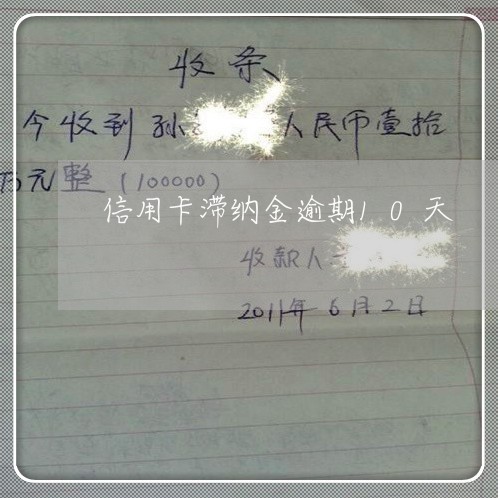 收条
今收到孙 人民币壹拾
万元整（100000）
信用卡滞纳金逾期10天
收款人
2011年6月2日